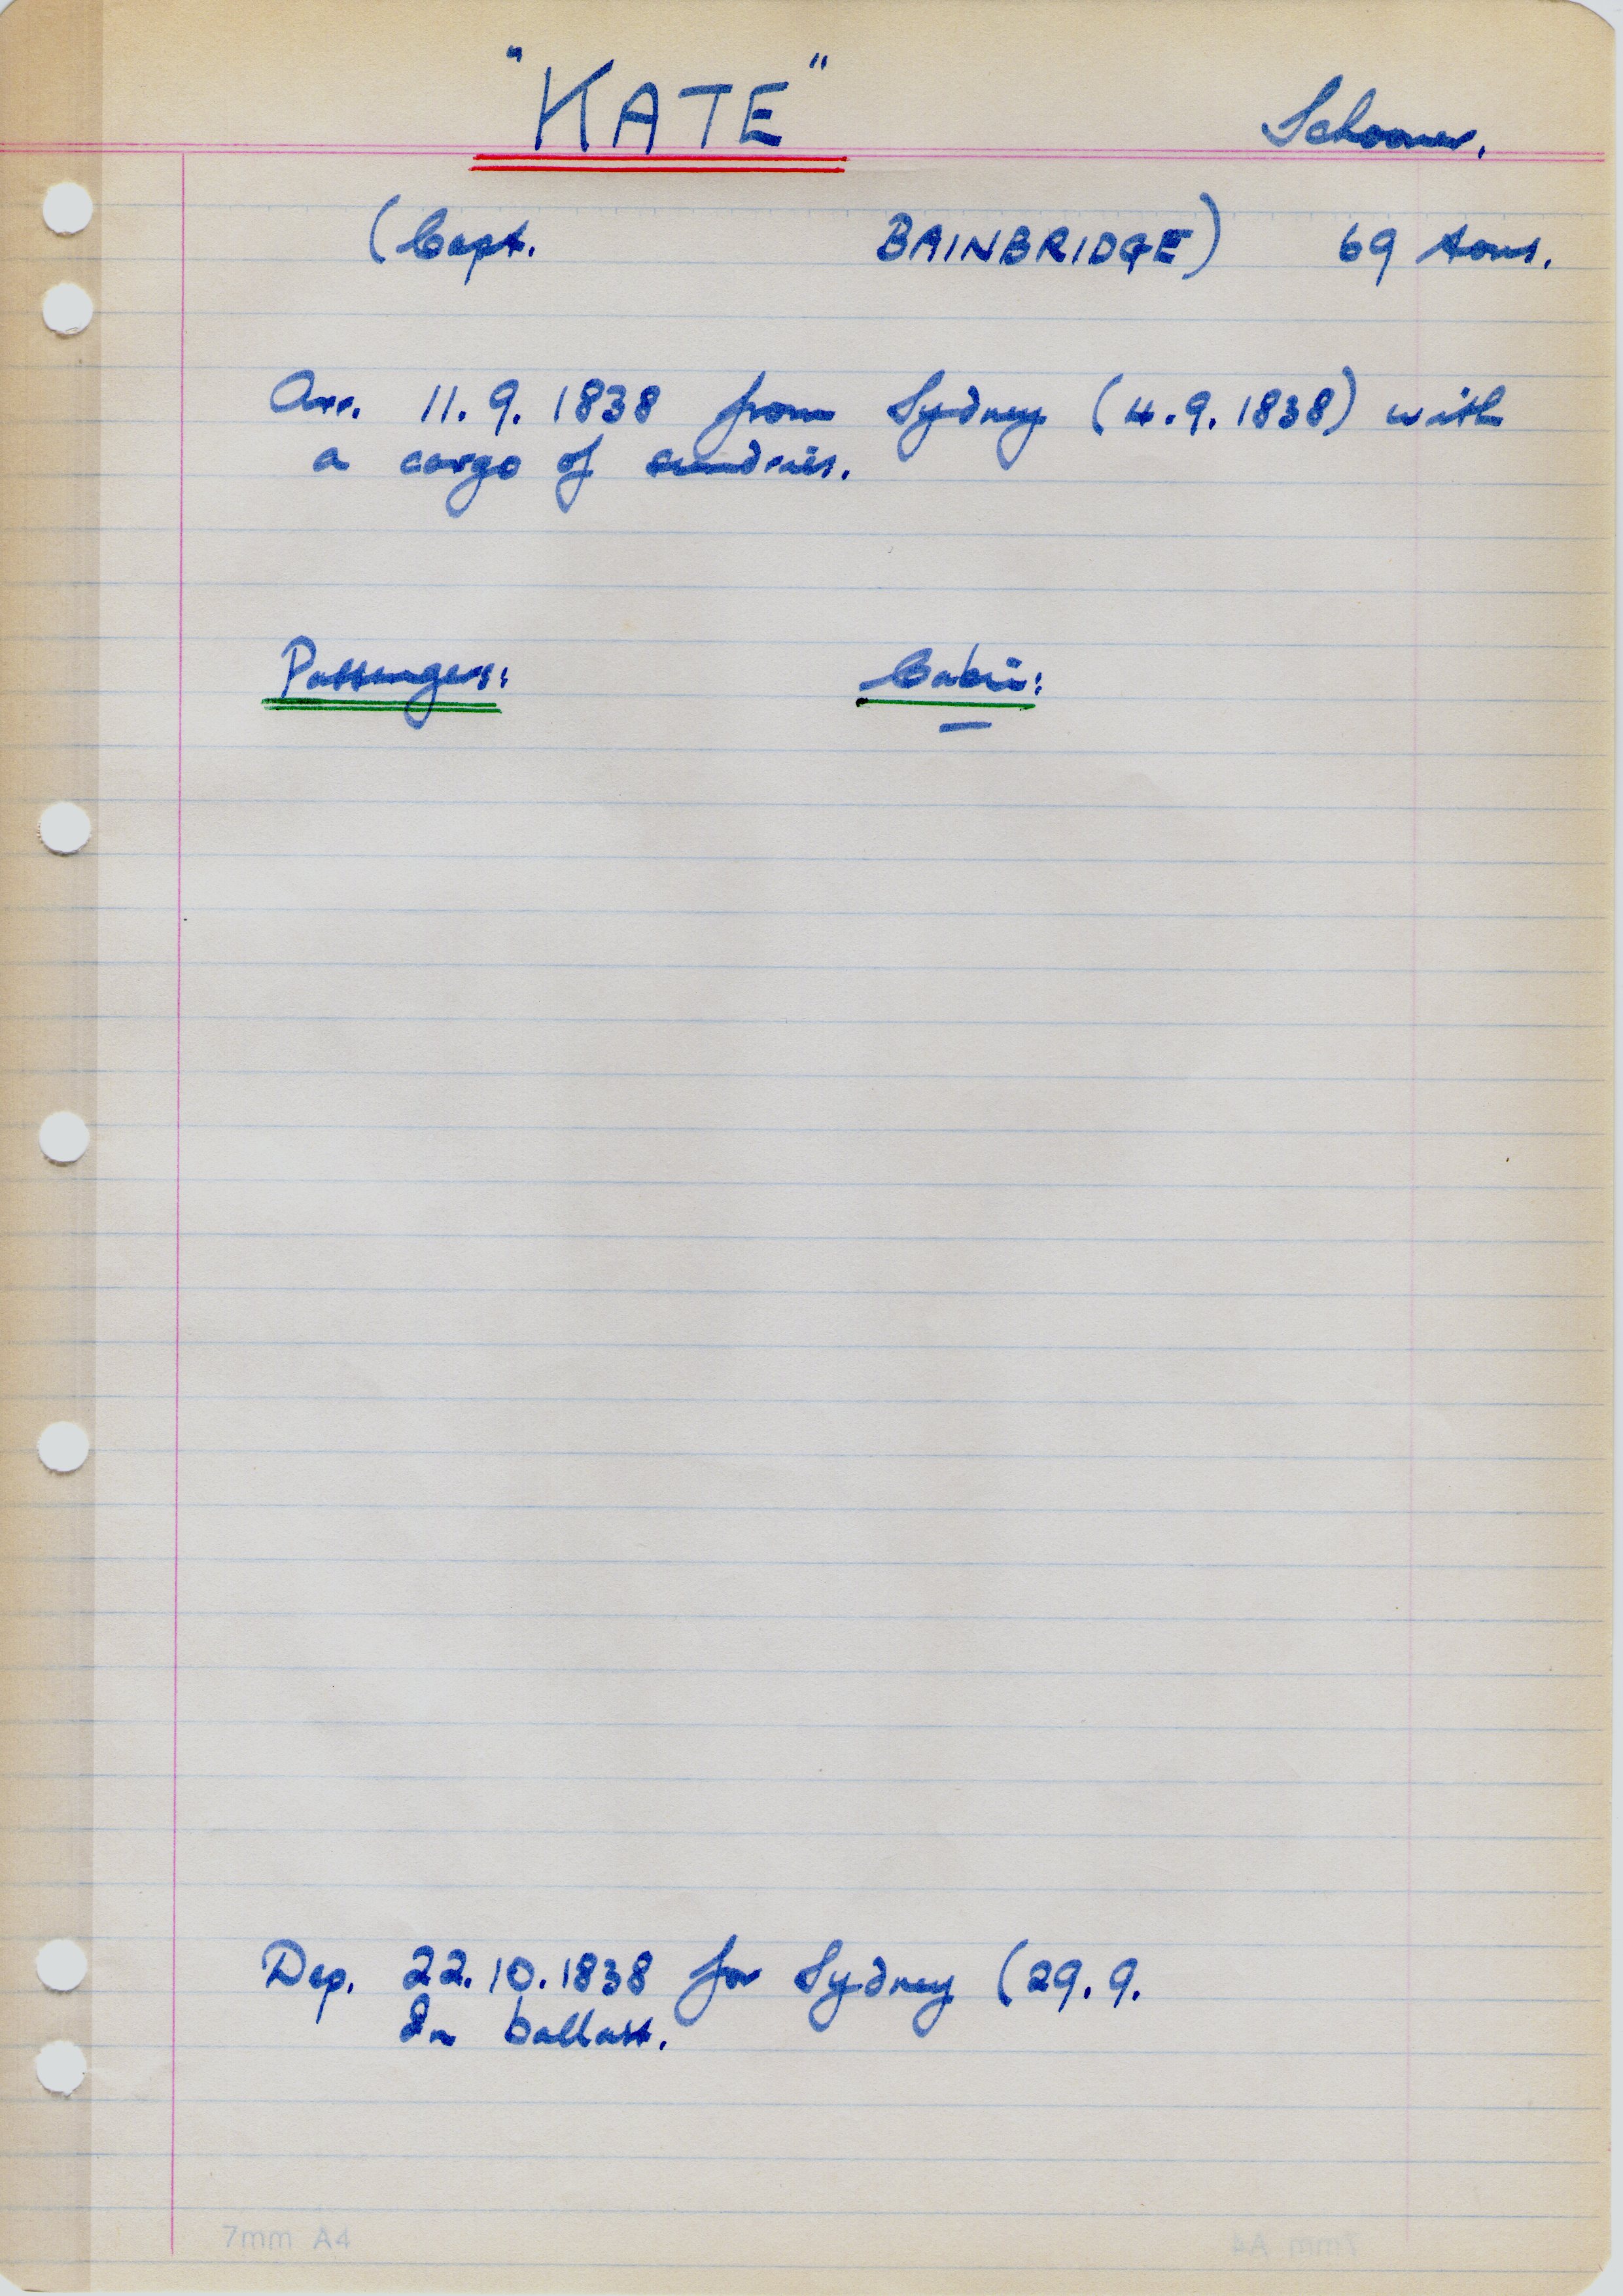 "KATE" Schooner.
(Capt. BAINBRIDGE) 69 tons.
Arr. 11.9.1838 from Sydney (4.9.1838) with
a cargo of sundries.
Passengers: Cabin:
—
Dep. 22.10.1838 for Sydney (29.9.
In ballast.
7mm A4